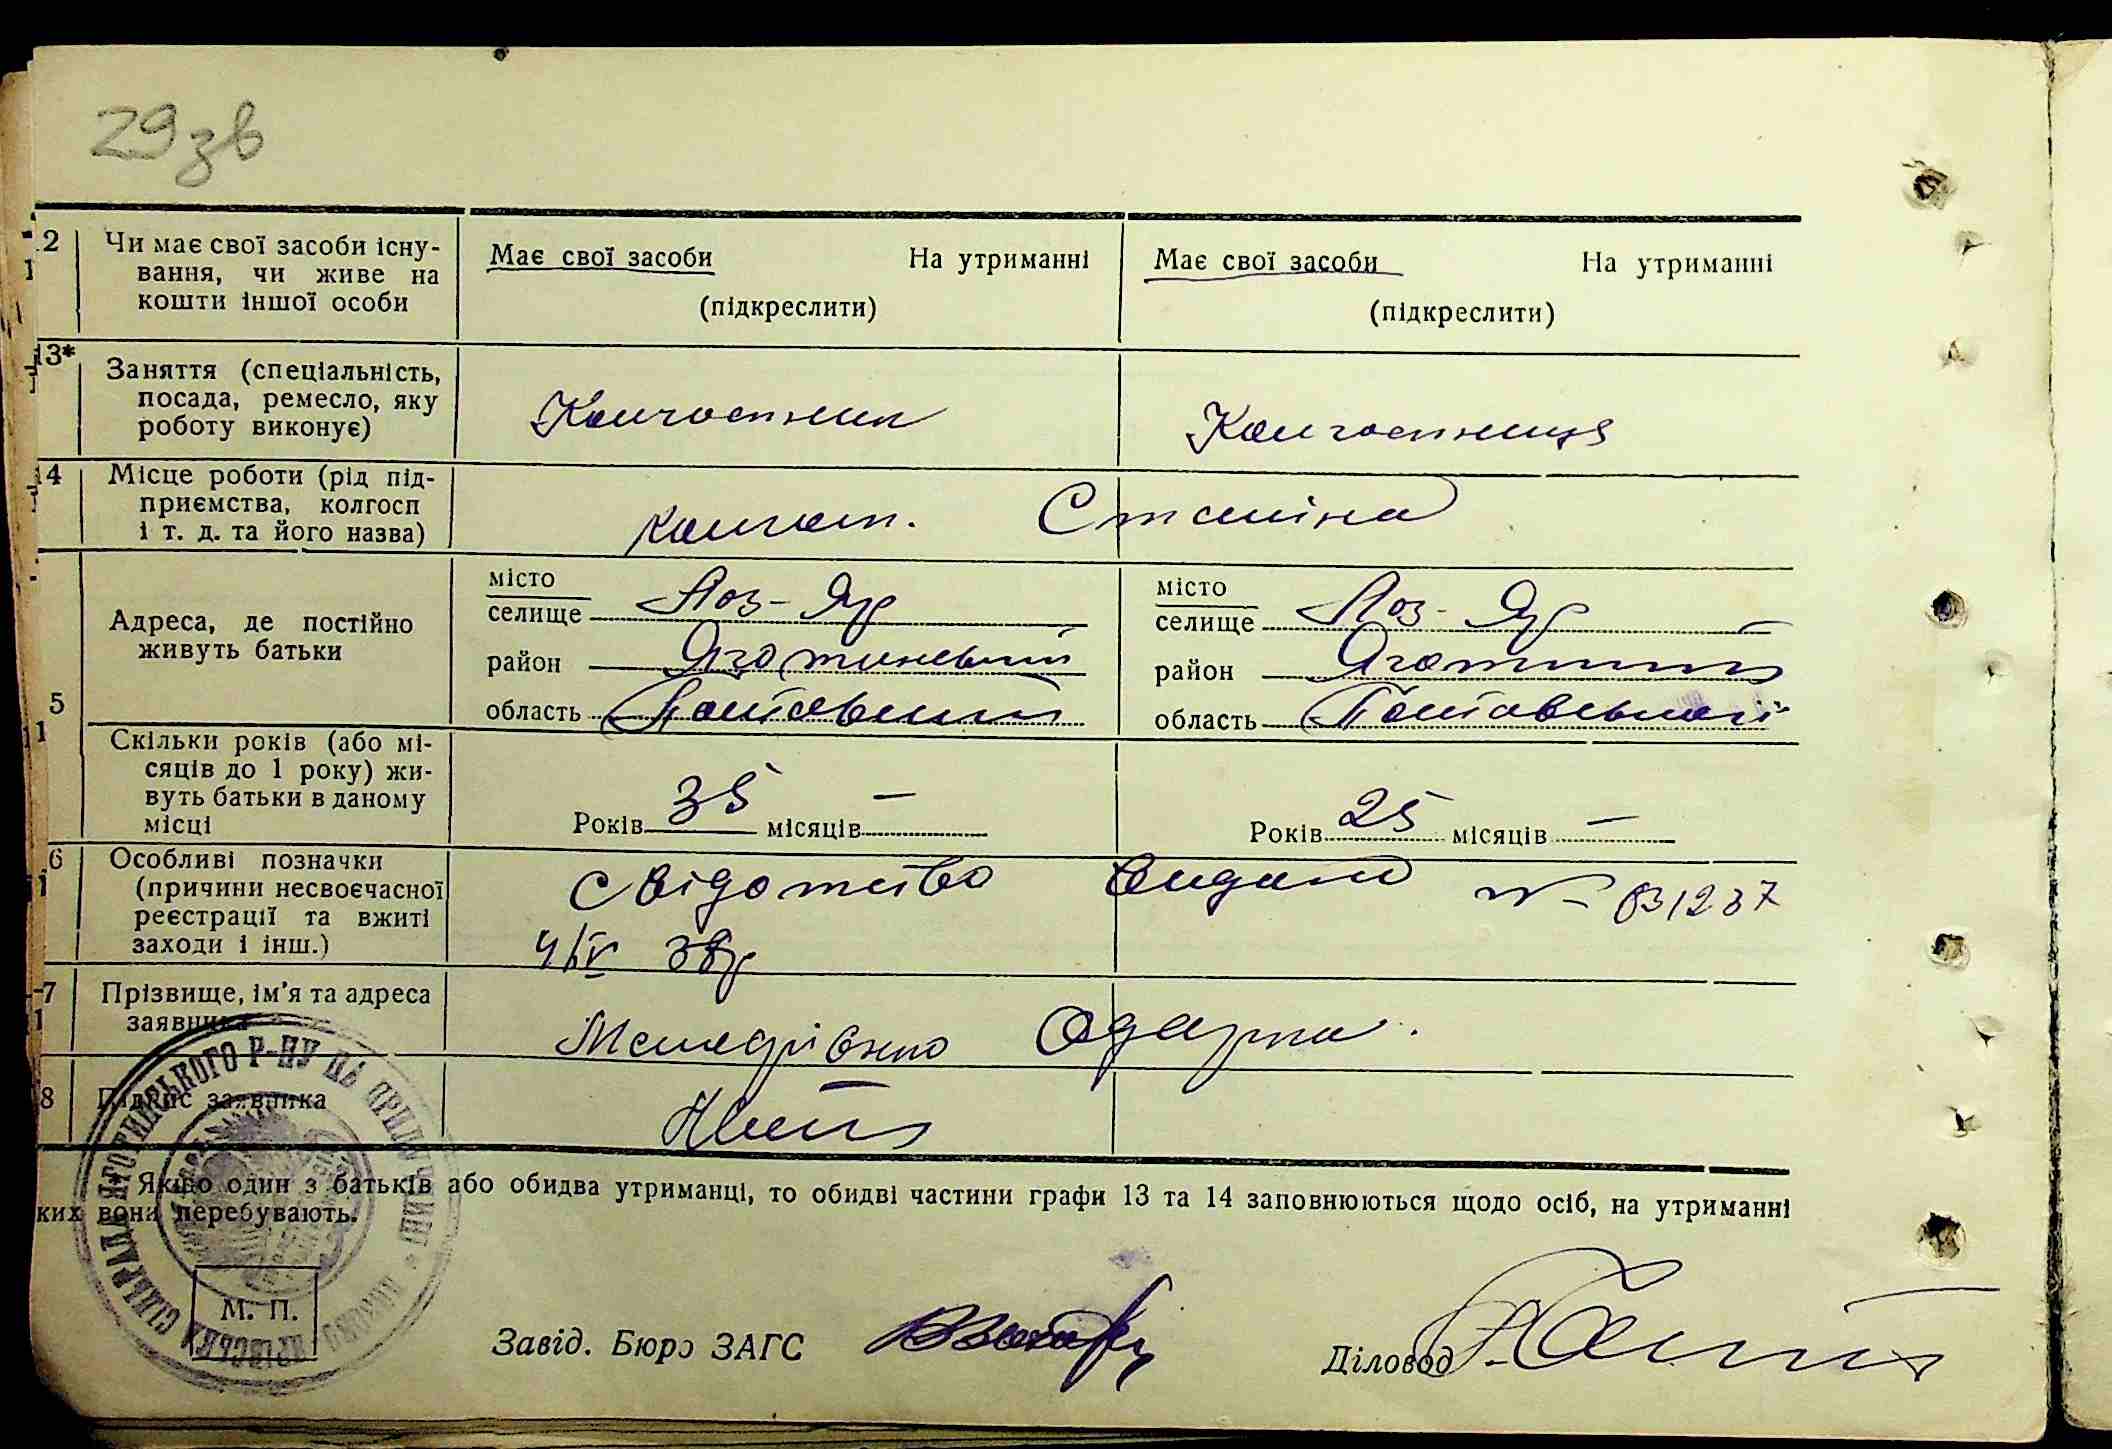 29 зв
2 Чи має свої засоби існу-
вання, чи живе на
кошти іншої особи
Має свої засоби На утриманні
(підкреслити)
Має свої засоби На утриманні
(підкреслити)
13* Заняття (спеціальність,
посада, ремесло, яку
роботу виконує)
Колгоспник
Колгоспниця
14 Місце роботи (рід під-
приємства, колгосп
і т. д. та його назва)
колгосп. Сталіна
5 Адреса, де постійно
живуть батьки
місто
селище Лоз-Яр
район Яготинський
область Полтавський
місто
селище Лоз-Яр
район Яготинський
область Полтавської
Скільки років (або мі-
сяців до 1 року) жи-
вуть батьки в даному
місці
Років 35 місяців —
Років 25 місяців —
6 Особливі позначки
(причини несвоєчасної
реєстрації та вжиті
заходи і інш.)
Свідотство видано № 031237
4/IV 38р
7 Прізвище, ім'я та адреса
заявника
Одарка.
8 Підпис заявника
* Якщо один з батьків або обидва утриманці, то обидві частини графи 13 та 14 заповнюються щодо осіб, на утриманні
ких вони перебувають.
М. П.
Завід. Бюро ЗАГС
Діловод